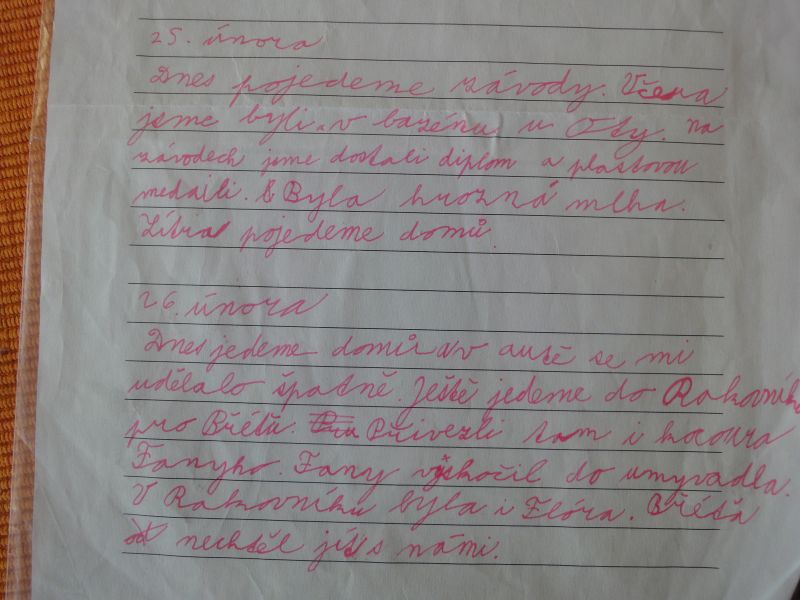 25. února
Dnes pojedeme závody. Včera
jsme byli v bazénu u Oty. Na
závodech jsme dostali diplom a plastovou
medaili. Byla hrozná mlha.
Zítra pojedeme domů.
26. února
Dnes jedeme domů v autě se mi
udělalo špatně. Ještě jedeme do Rakovníka
pro Břéťu. Přivezli tam i kocoura
Fanyho. Fany vyskočil do umyvadla.
V Rakovníku byla i Flóra. Břéťa
nechtěl jít s námi.